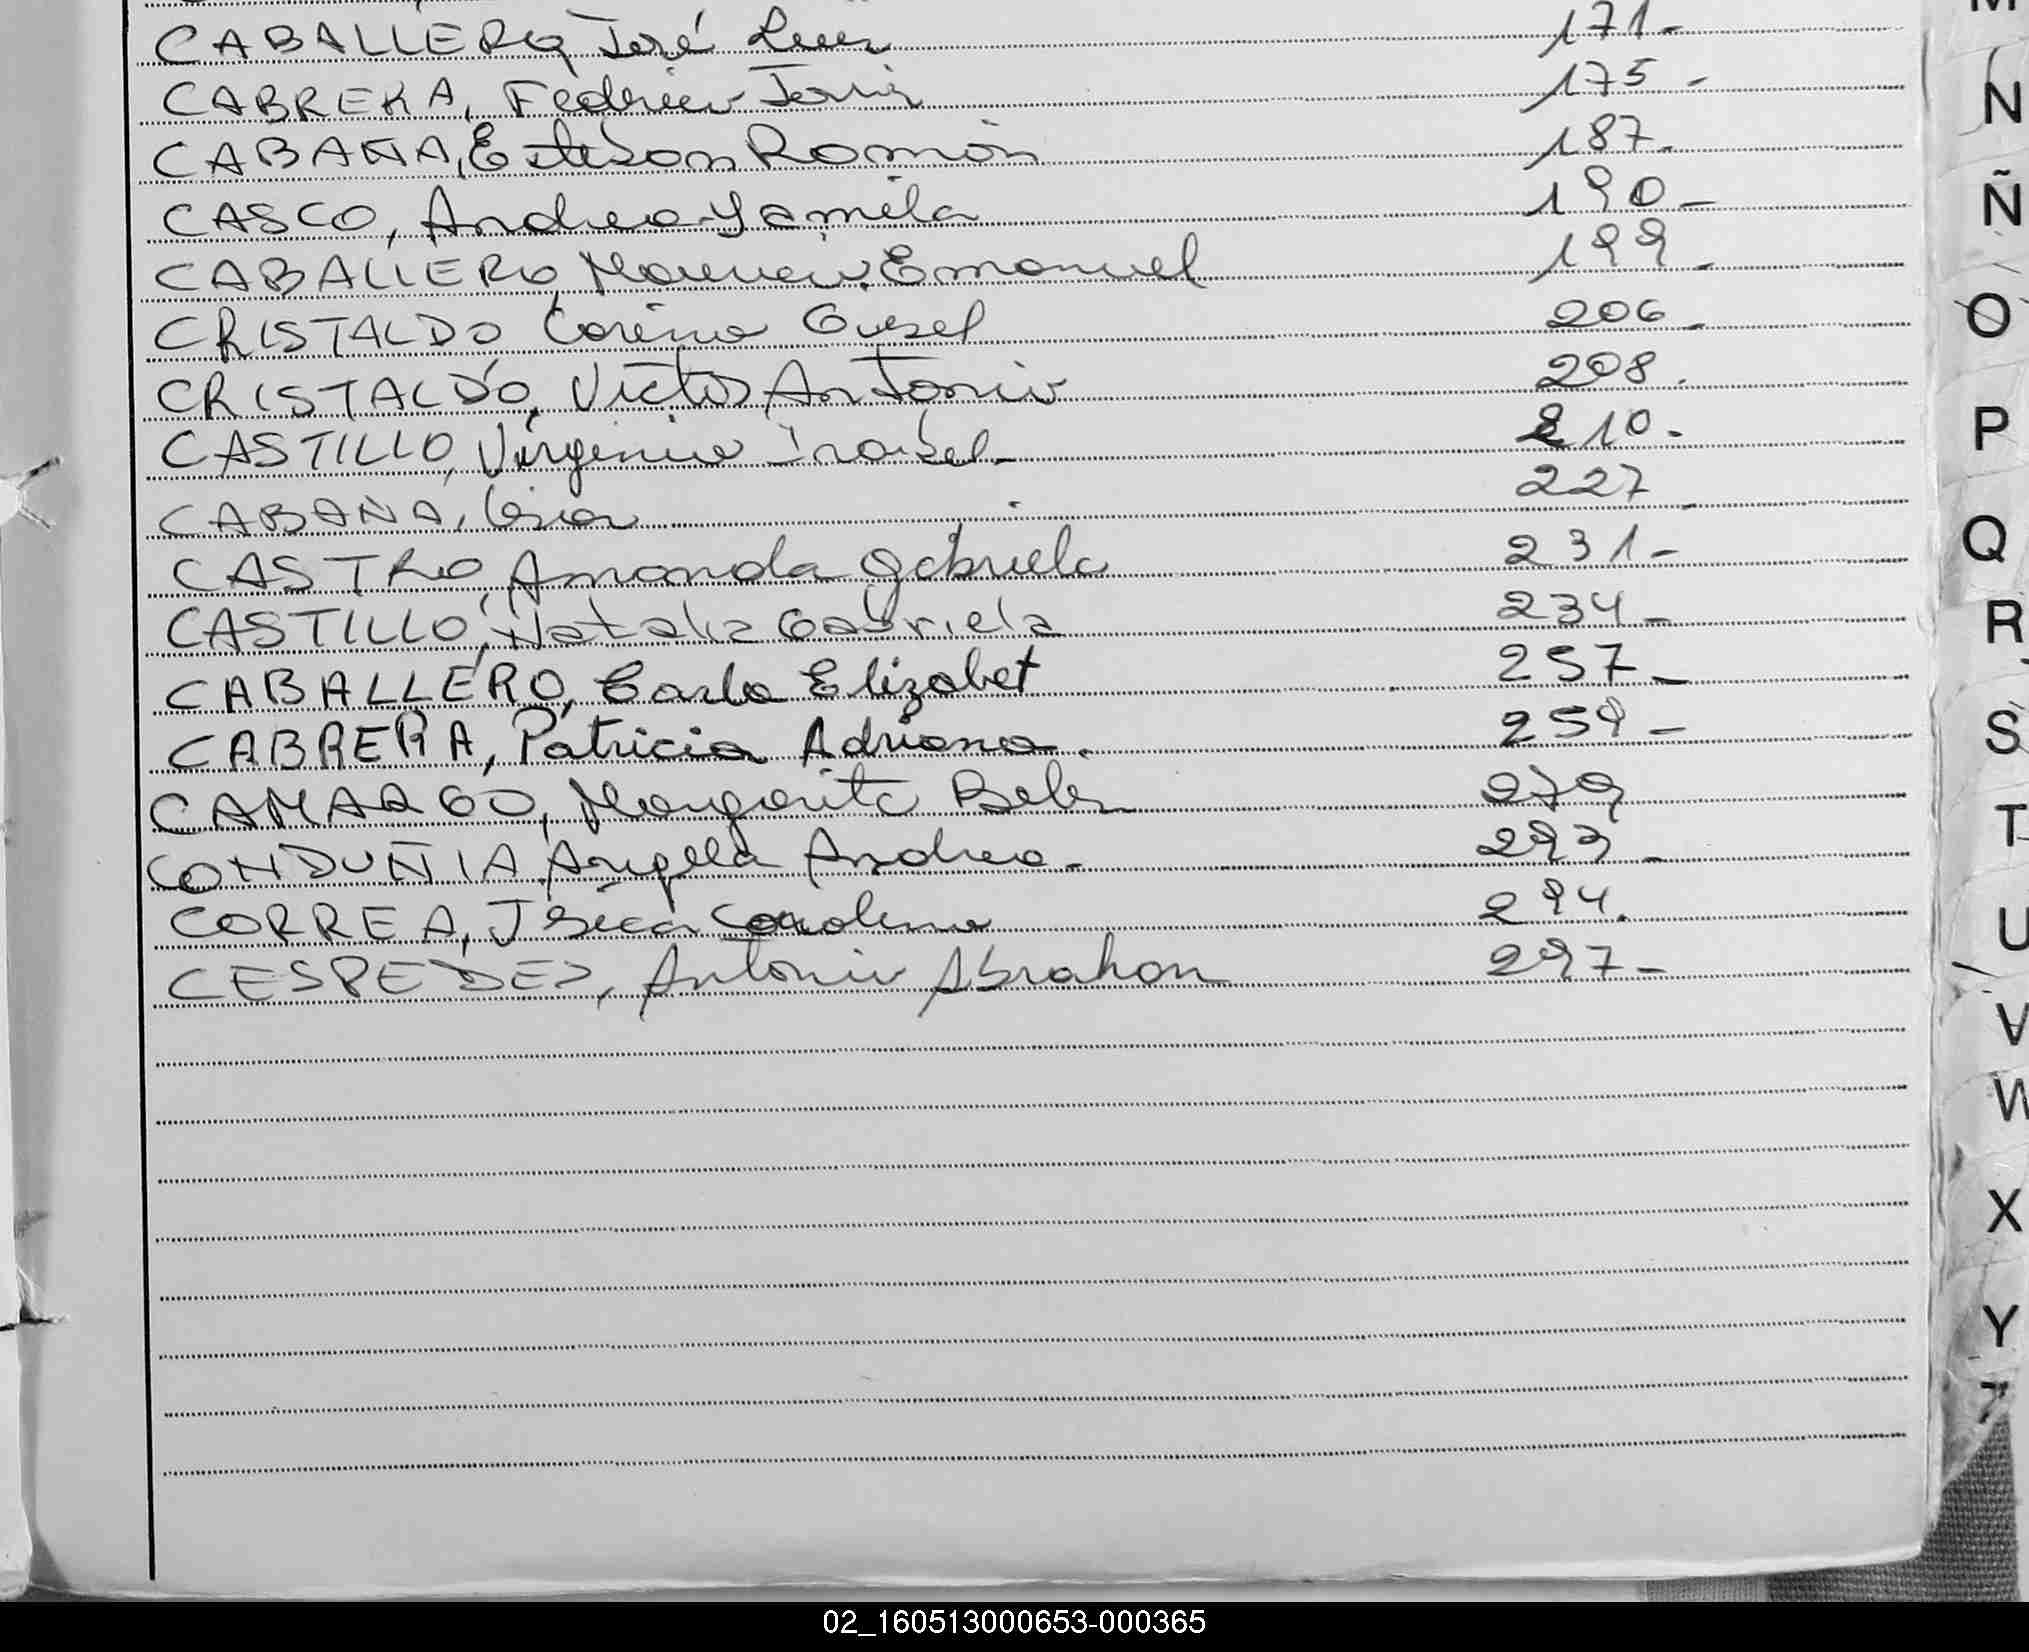 CABALLERO, José Luis 171-
CABRERA, Federico Javier 175-
CABAÑA, Esteban Ramón 187-
CASCO, Andrea Yamila 190-
CABALLERO, Emanuel 199-
CRISTALDO Corina Gisel 206-
CRISTALDO, Victor Antonio 208.
CASTILLO, Virginia Isabel- 210-
CABAÑA, 227-
CASTRO, Amanda Gabriela 231-
CASTILLO, Natalia Gabriela 234-
CABALLERO, Carla Elizabet 257-
CABRERA, Patricia Adriana. 259-
CAMARGO, Margarita Belen 279
CONDUÑIA Angela Andrea- 293-
CORREA, Jesica Carolina 294.
CESPEDES, Antonio Abrahan 297-
M
N
Ñ
O
P
Q
R
S
T
U
V
W
X
Y
Z
02_160513000653-000365